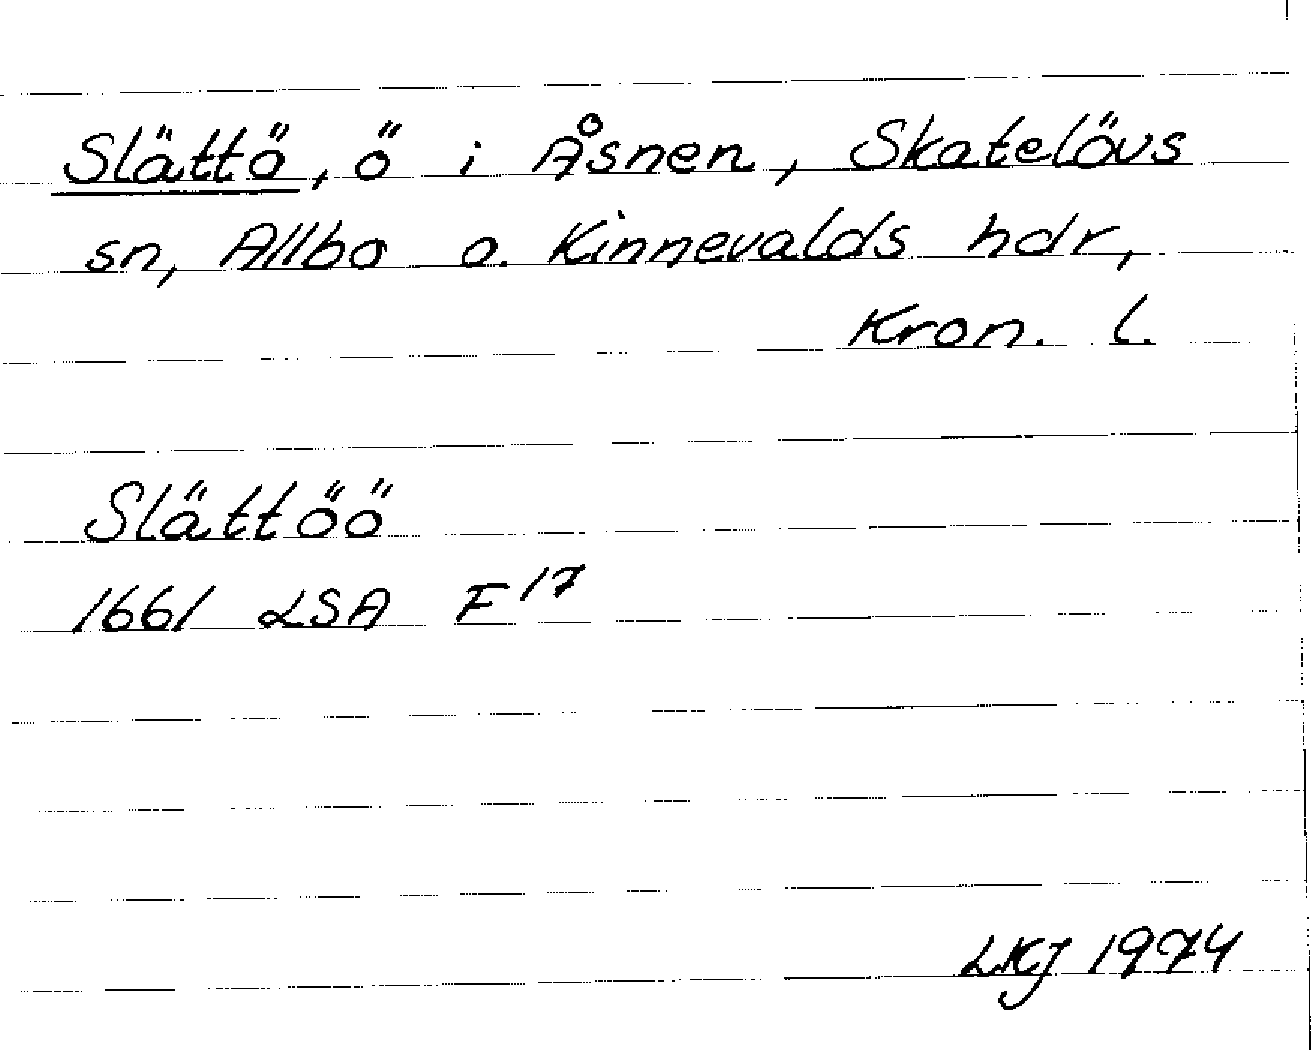 Slättö, ö i Åsnen, Skatelövs
sn, Allbo o. Kinnevalds hdr,
Kron. l.
Slättöö
1661 LSA F 17
LKJ 1974